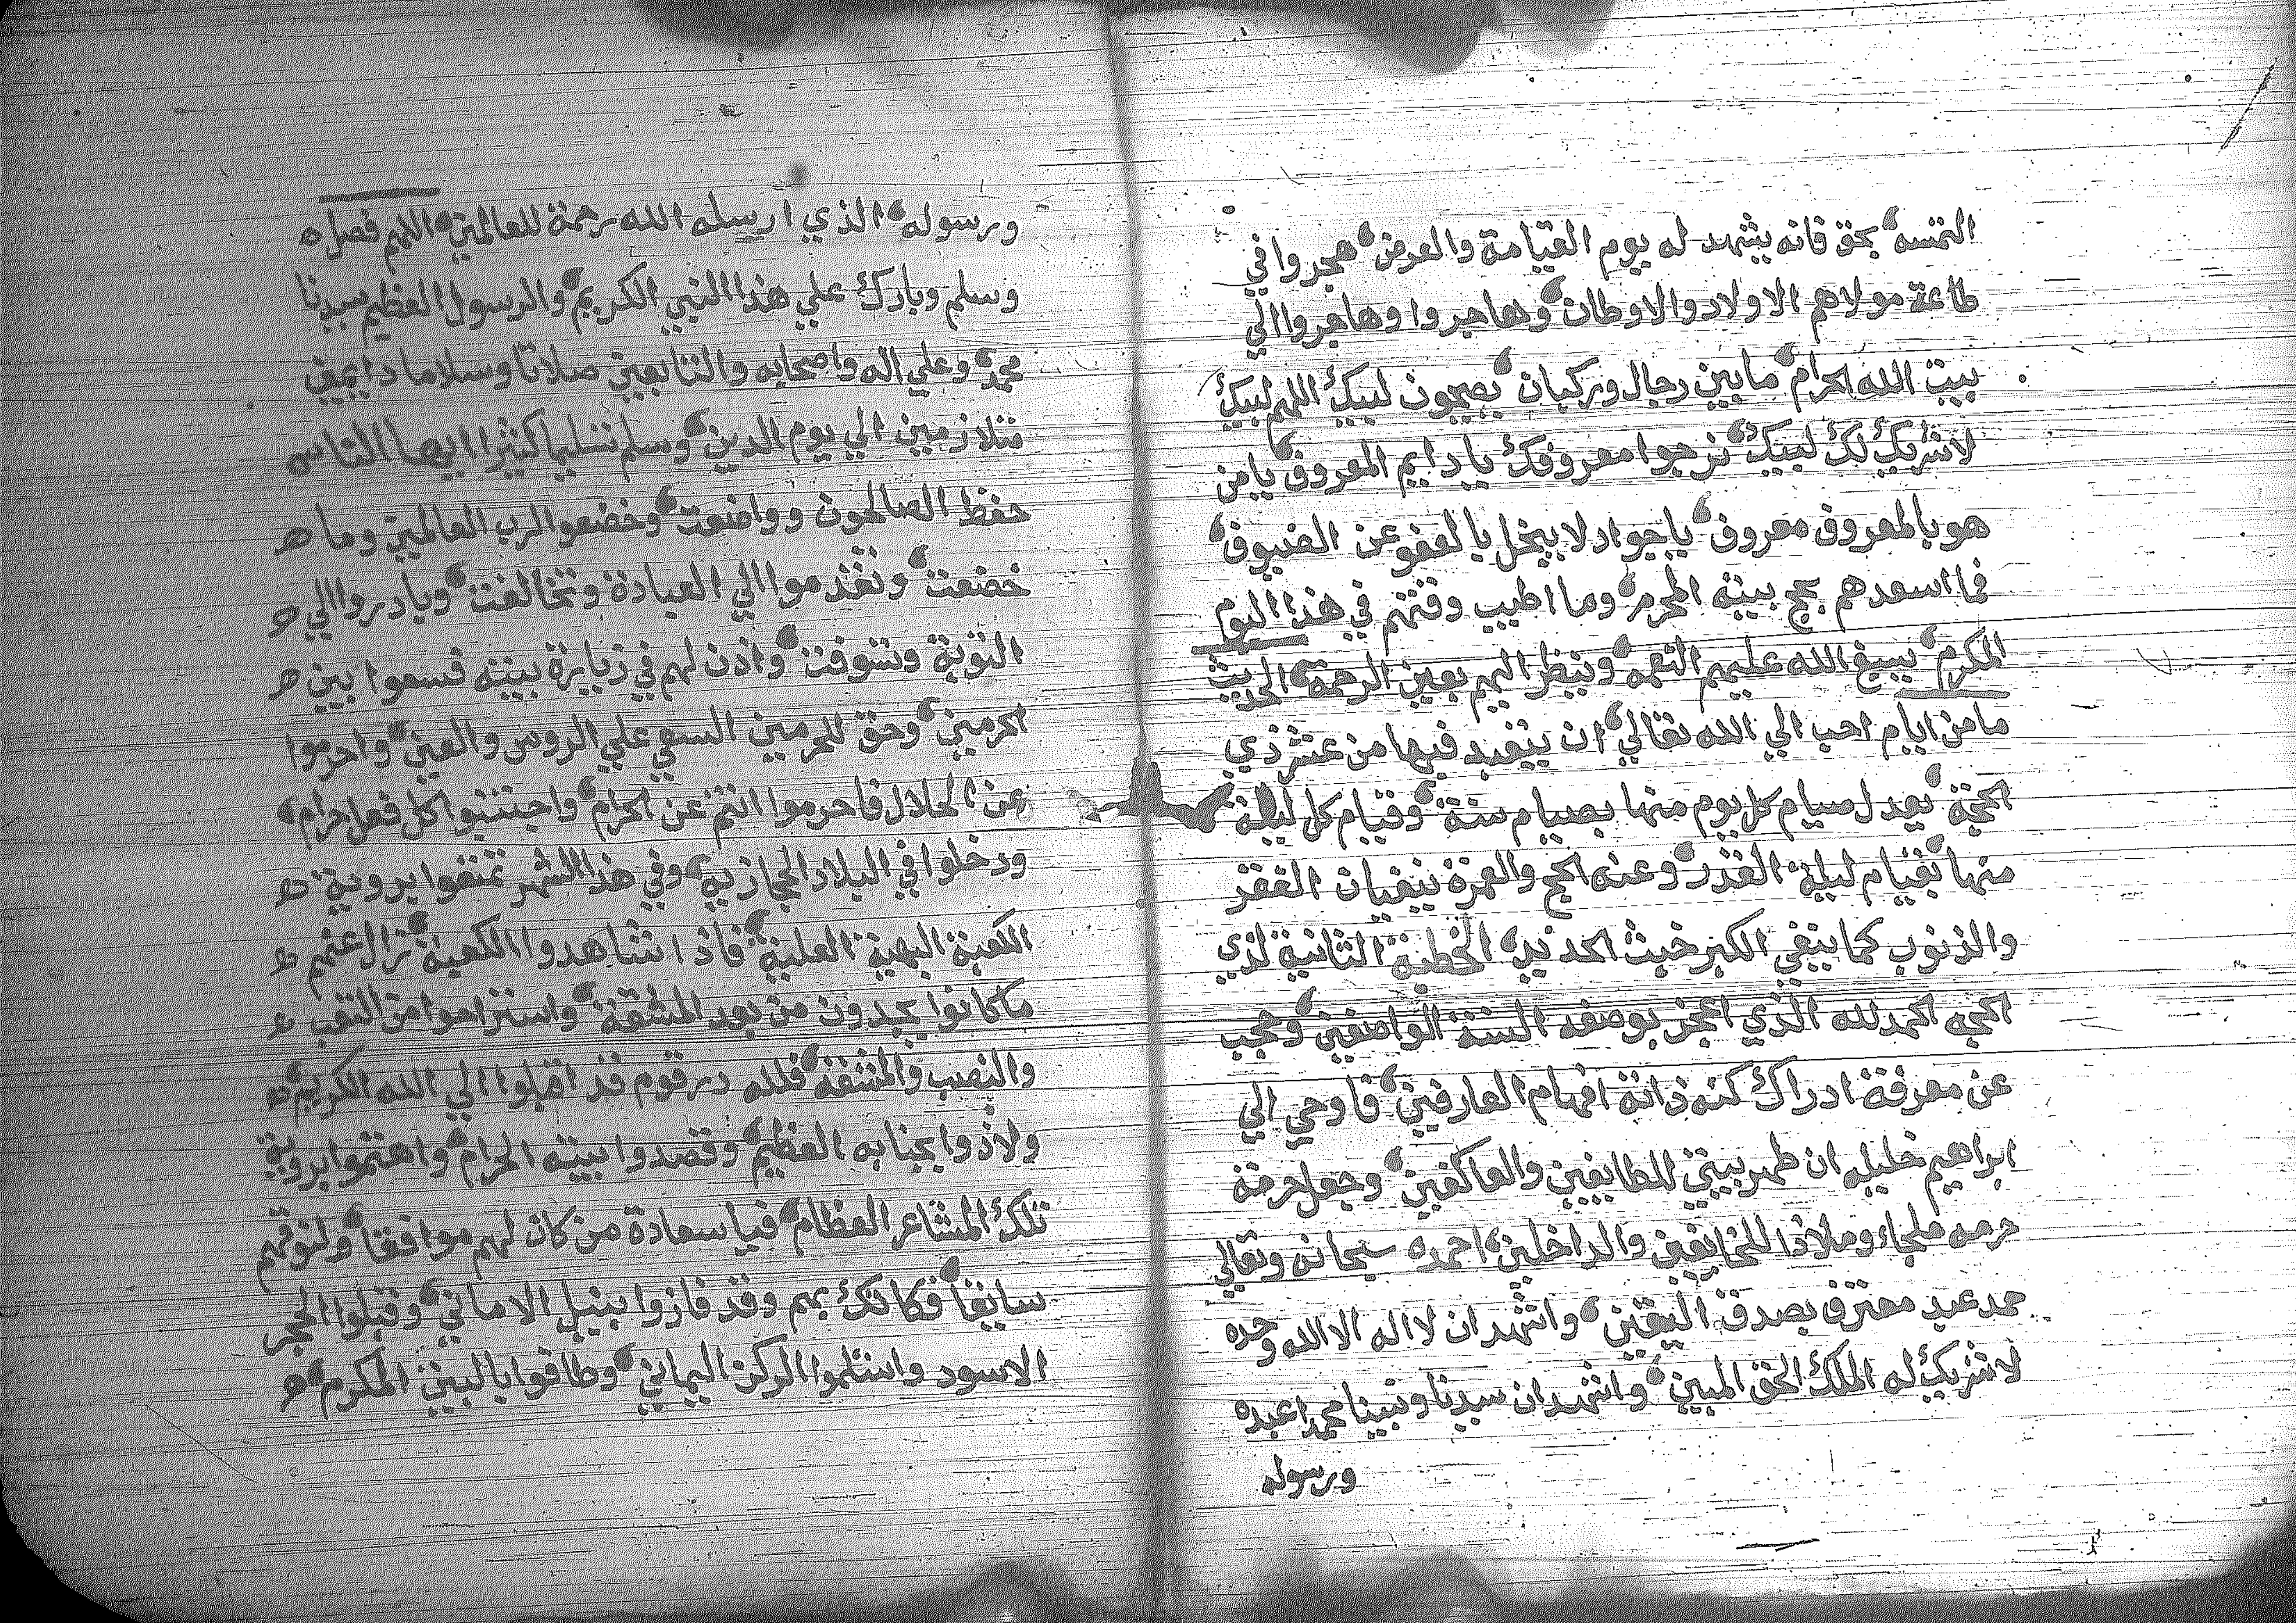 التمسه بحق فانه يشهد له يوم القيامة والعرض هجروا في
طاعة مولاهم الاولاد والاوطان وهاجروا وهاجروا الي
بيت الله الحرام ما بين رجال وركبان يصيحون لبيك اللهم لبيك
لا شريك لك لبيك نرجوا معروفك يا دايم المعروف يا من
هو بالمعروف معروف يا جواد لا يبخل بالعفو عن الضيوف
فما اسعدهم بحج بيته المحرم وما اطيب وقتهم في هذا اليوم
المكرم يسبغ الله عليهم النعمه وينظر اليهم بعين الرحمة الحديث
ما من ايام احب الي الله تعالي ان يتعبد فيها من عشر ذي
الحجة يعدل صيام كل يوم منها بصيام سنة وقيام كل ليلة
منها بقيام ليلة القدر وعنه الحج والعمرة ينفيان الفقر
والذنوب كما ينفي الكير خبث الحديد الخطبة الثانية لذي
الحجه الحمد لله الذي اعجز بوصفه السنة الواصفين وحجب
عن معرفة ادراك كنه ذاته افهام العارفين فاوحي الي
ابراهيم خليله ان طهر بيتي للطايفين والعاكفين وجعل حرمة
حرمه ملجاء وملاذا للخايفين والداخلين احمده سبحانه وتعالي
حمد عبد معترف بصدق اليقين واشهد ان لا اله الا الله وحده
لا شريك له الملك الحق المبين واشهد ان سيدنا ونبينا محمدا عبده
ورسوله
ورسوله الذي ارسله الله رحمة للعالمين اللهم فصل
وسلم وبارك علي هذا النبي الكريم والرسول العظيم سيدنا
محمد وعلي اله واصحابه والتابعين صلاتا وسلاما دايمين
متلازمين الي يوم الدين وسلم تسليما كثيرا ايها الناس
حفظ الصالحون وواضعت وخضعوا لرب العالمين وما
خضعت وتقدموا الي العبادة وتخالفت وبادروا الي
التوبة وتسوفت واذن لهم في زيارة بيته فسعوا بين
الحرمين وحق للحرمين السعي علي الروس والعين واحرموا
عن الحلال فاحرموا انتم عن الحرام واجتنبوا كل فعل حرام
ودخلوا في البلاد الحجازية وفي هذا الشهر تمتعوا بروية
الكعبة البهية العلية فاذا شاهدوا الكعبة زال عنهم
ما كانوا يجدون من بعد المشقة واستراحوا من التعب
والنصب والمشقة فلله در قوم قد اقبلوا الي الله الكريم
ولاذوا بجنابه العظيم وقصدوا بيته الحرام واهتموا بروية
تلك المشاعر العظام فيا سعادة من كان لهم موافقا ولنوقهم
سايقا فكانك بهم وقد فازوا بنيل الاماني وقبلوا الحجر
الاسود واستلموا الركن اليماني وطافوا بالبيت المكرم